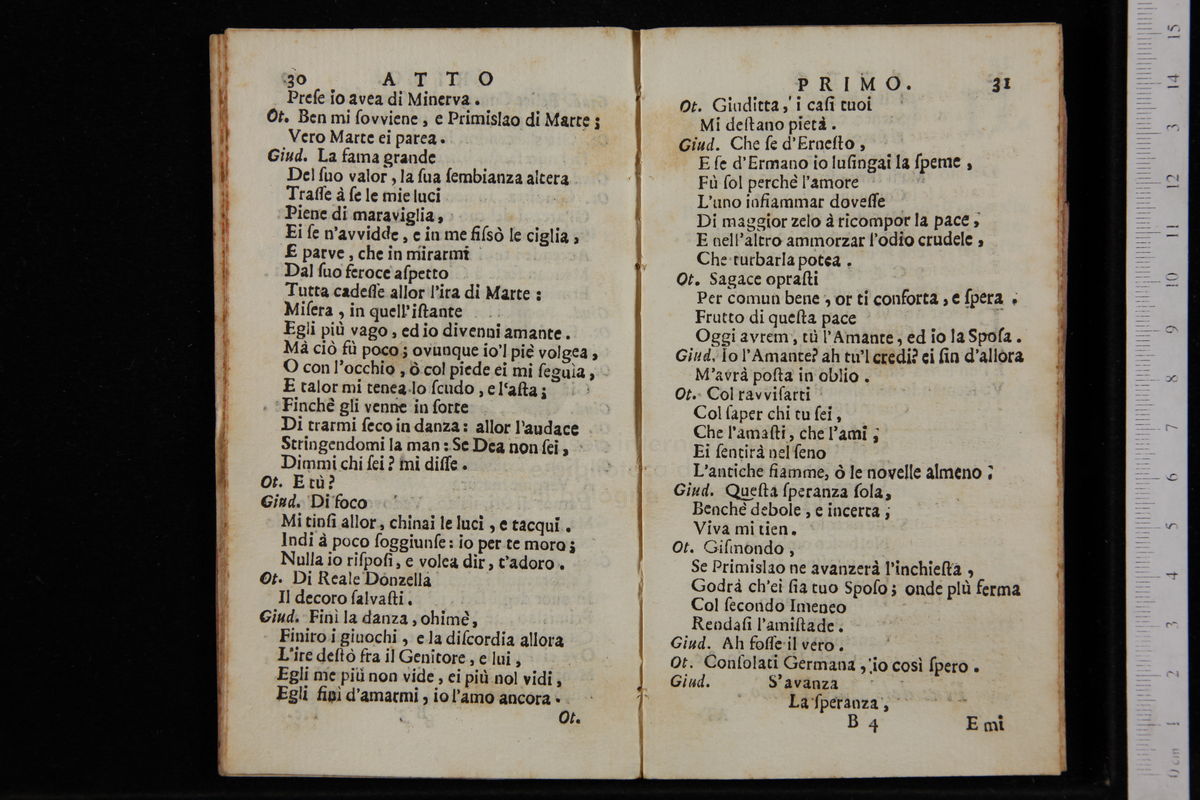 30 ATTO
Preſe io avea di Minerva.
Ot. Ben mi ſovviene, e Primislao di Marte;
Vero Marte ei parea.
Giud. La fama grande
Del ſuo valor, la ſua ſembianza altera
Traſſe à ſe le mie luci
Piene di maraviglia,
Ei ſe n'avvidde, e in me fiſsò le ciglia,
E parve, che in mirarmi
Dal ſuo feroce aſpetto
Tutta cadeſſe allor l'ira di Marte:
Miſera, in quell'iſtante
Egli più vago, ed io divenni amante.
Mà ciò fù poco; ovunque io'l piè volgea,
O con l'occhio, ò col piede ei mi ſeguia,
E talor mi tenea lo ſcudo, e l'aſta;
Finchè gli venne in ſorte
Di trarmi ſeco in danza: allor l'audace
Stringendomi la man: Se Dea non ſei,
Dimmi chi ſei? mi diſſe.
Ot. E tù?
Giud. Di foco
Mi tinſi allor, chinai le luci, e tacqui.
Indi à poco ſoggiunſe: io per te moro;
Nulla io riſpoſi, e volea dir, t'adoro.
Ot. Di Reale Donzella
Il decoro ſalvaſti.
Giud. Finì la danza, ohimè,
Finiro i giuochi, e la diſcordia allora
L'ire deſtò fra il Genitore, e lui,
Egli me più non vide, ei più nol vidi,
Egli finì d'amarmi, io l'amo ancora.
Ot.
PRIMO. 31
Ot. Giuditta, i caſi tuoi
Mi deſtano pietà.
Giud. Che ſe d'Erneſto,
E ſe d'Ermano io luſingai la ſpeme,
Fù ſol perchè l'amore
L'uno infiammar doveſſe
Di maggior zelo à ricompor la pace,
E nell'altro ammorzar l'odio crudele,
Che turbarla potea.
Ot. Sagace opraſti
Per comun bene, or ti conforta, e ſpera.
Frutto di queſta pace
Oggi avrem, tù l'Amante, ed io la Spoſa.
Giud. Io l'Amante? ah tu'l credi? ei fin d'allora
M'avrà poſta in oblio.
Ot. Col ravviſarti
Col ſaper chi tu ſei,
Che l'amaſti, che l'ami;
Ei ſentirà nel ſeno
L'antiche fiamme, ò le novelle almeno.
Giud. Queſta ſperanza ſola,
Benchè debole, e incerta,
Viva mi tien.
Ot. Giſmondo,
Se Primislao ne avanzerà l'inchieſta,
Godrà ch'ei ſia tuo Spoſo; onde più ferma
Col ſecondo Imeneo
Rendaſi l'amiſtade.
Giud. Ah foſſe il vero.
Ot. Conſolati Germana, io così ſpero.
Giud. S'avanza
La ſperanza,
B 4 E mi
0 cm 1 2 3 4 5 6 7 8 9 10 11 12 13 14 15